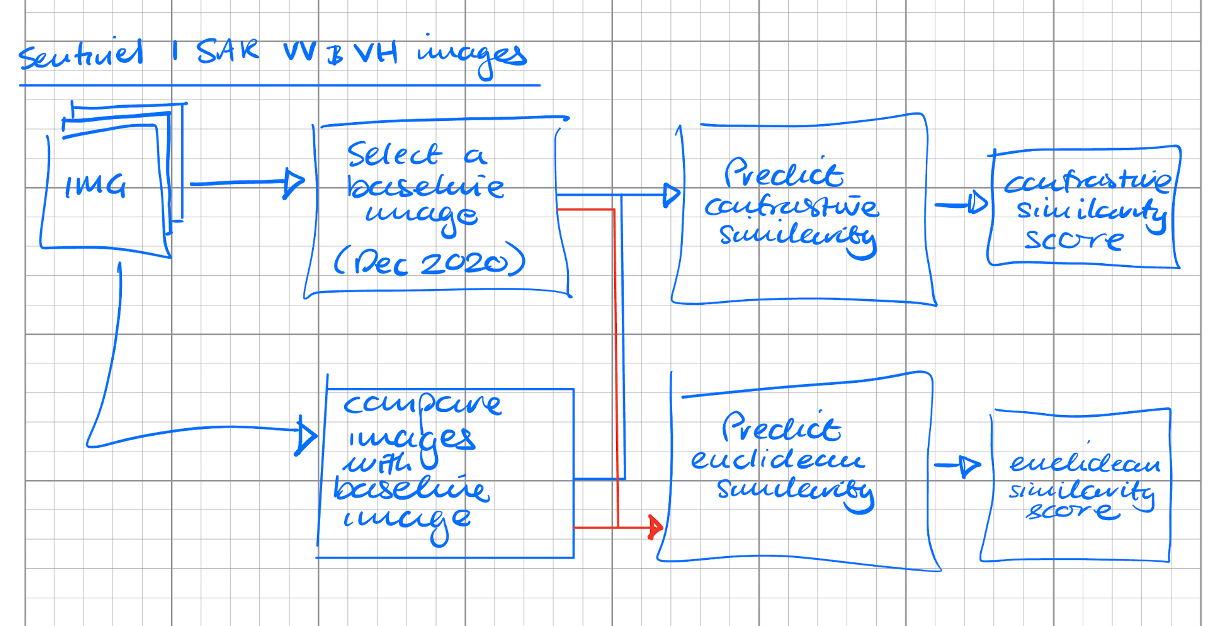 Sentinel 1 SAR VV & VH images
IMG
Select a
baseline
image
(Dec 2020)
Predict
contrastive
similarity
contrastive
similarity
score
compare
images
with
baseline
image
Predict
euclidean
similarity
euclidean
similarity
score